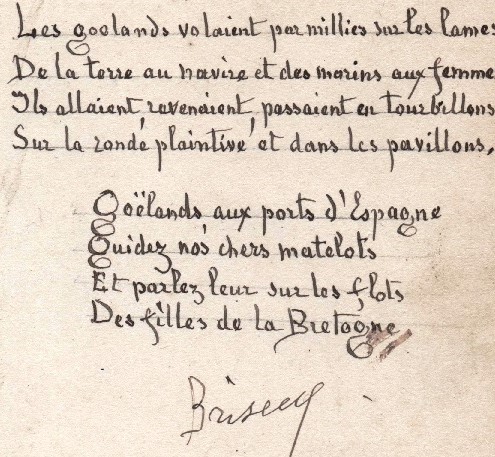 Les goelands volaient par millies sur les lames
De la terre au navire et des marins aux femme
Ils allaient, revenaient, passaient en tourbillons
Sur la ronde plaintive et dans les pavillons,
Goëlands aux ports d'Espagne
Guidez nos chers matelots
Et parlez leur sur les flots
Des filles de la Bretagne